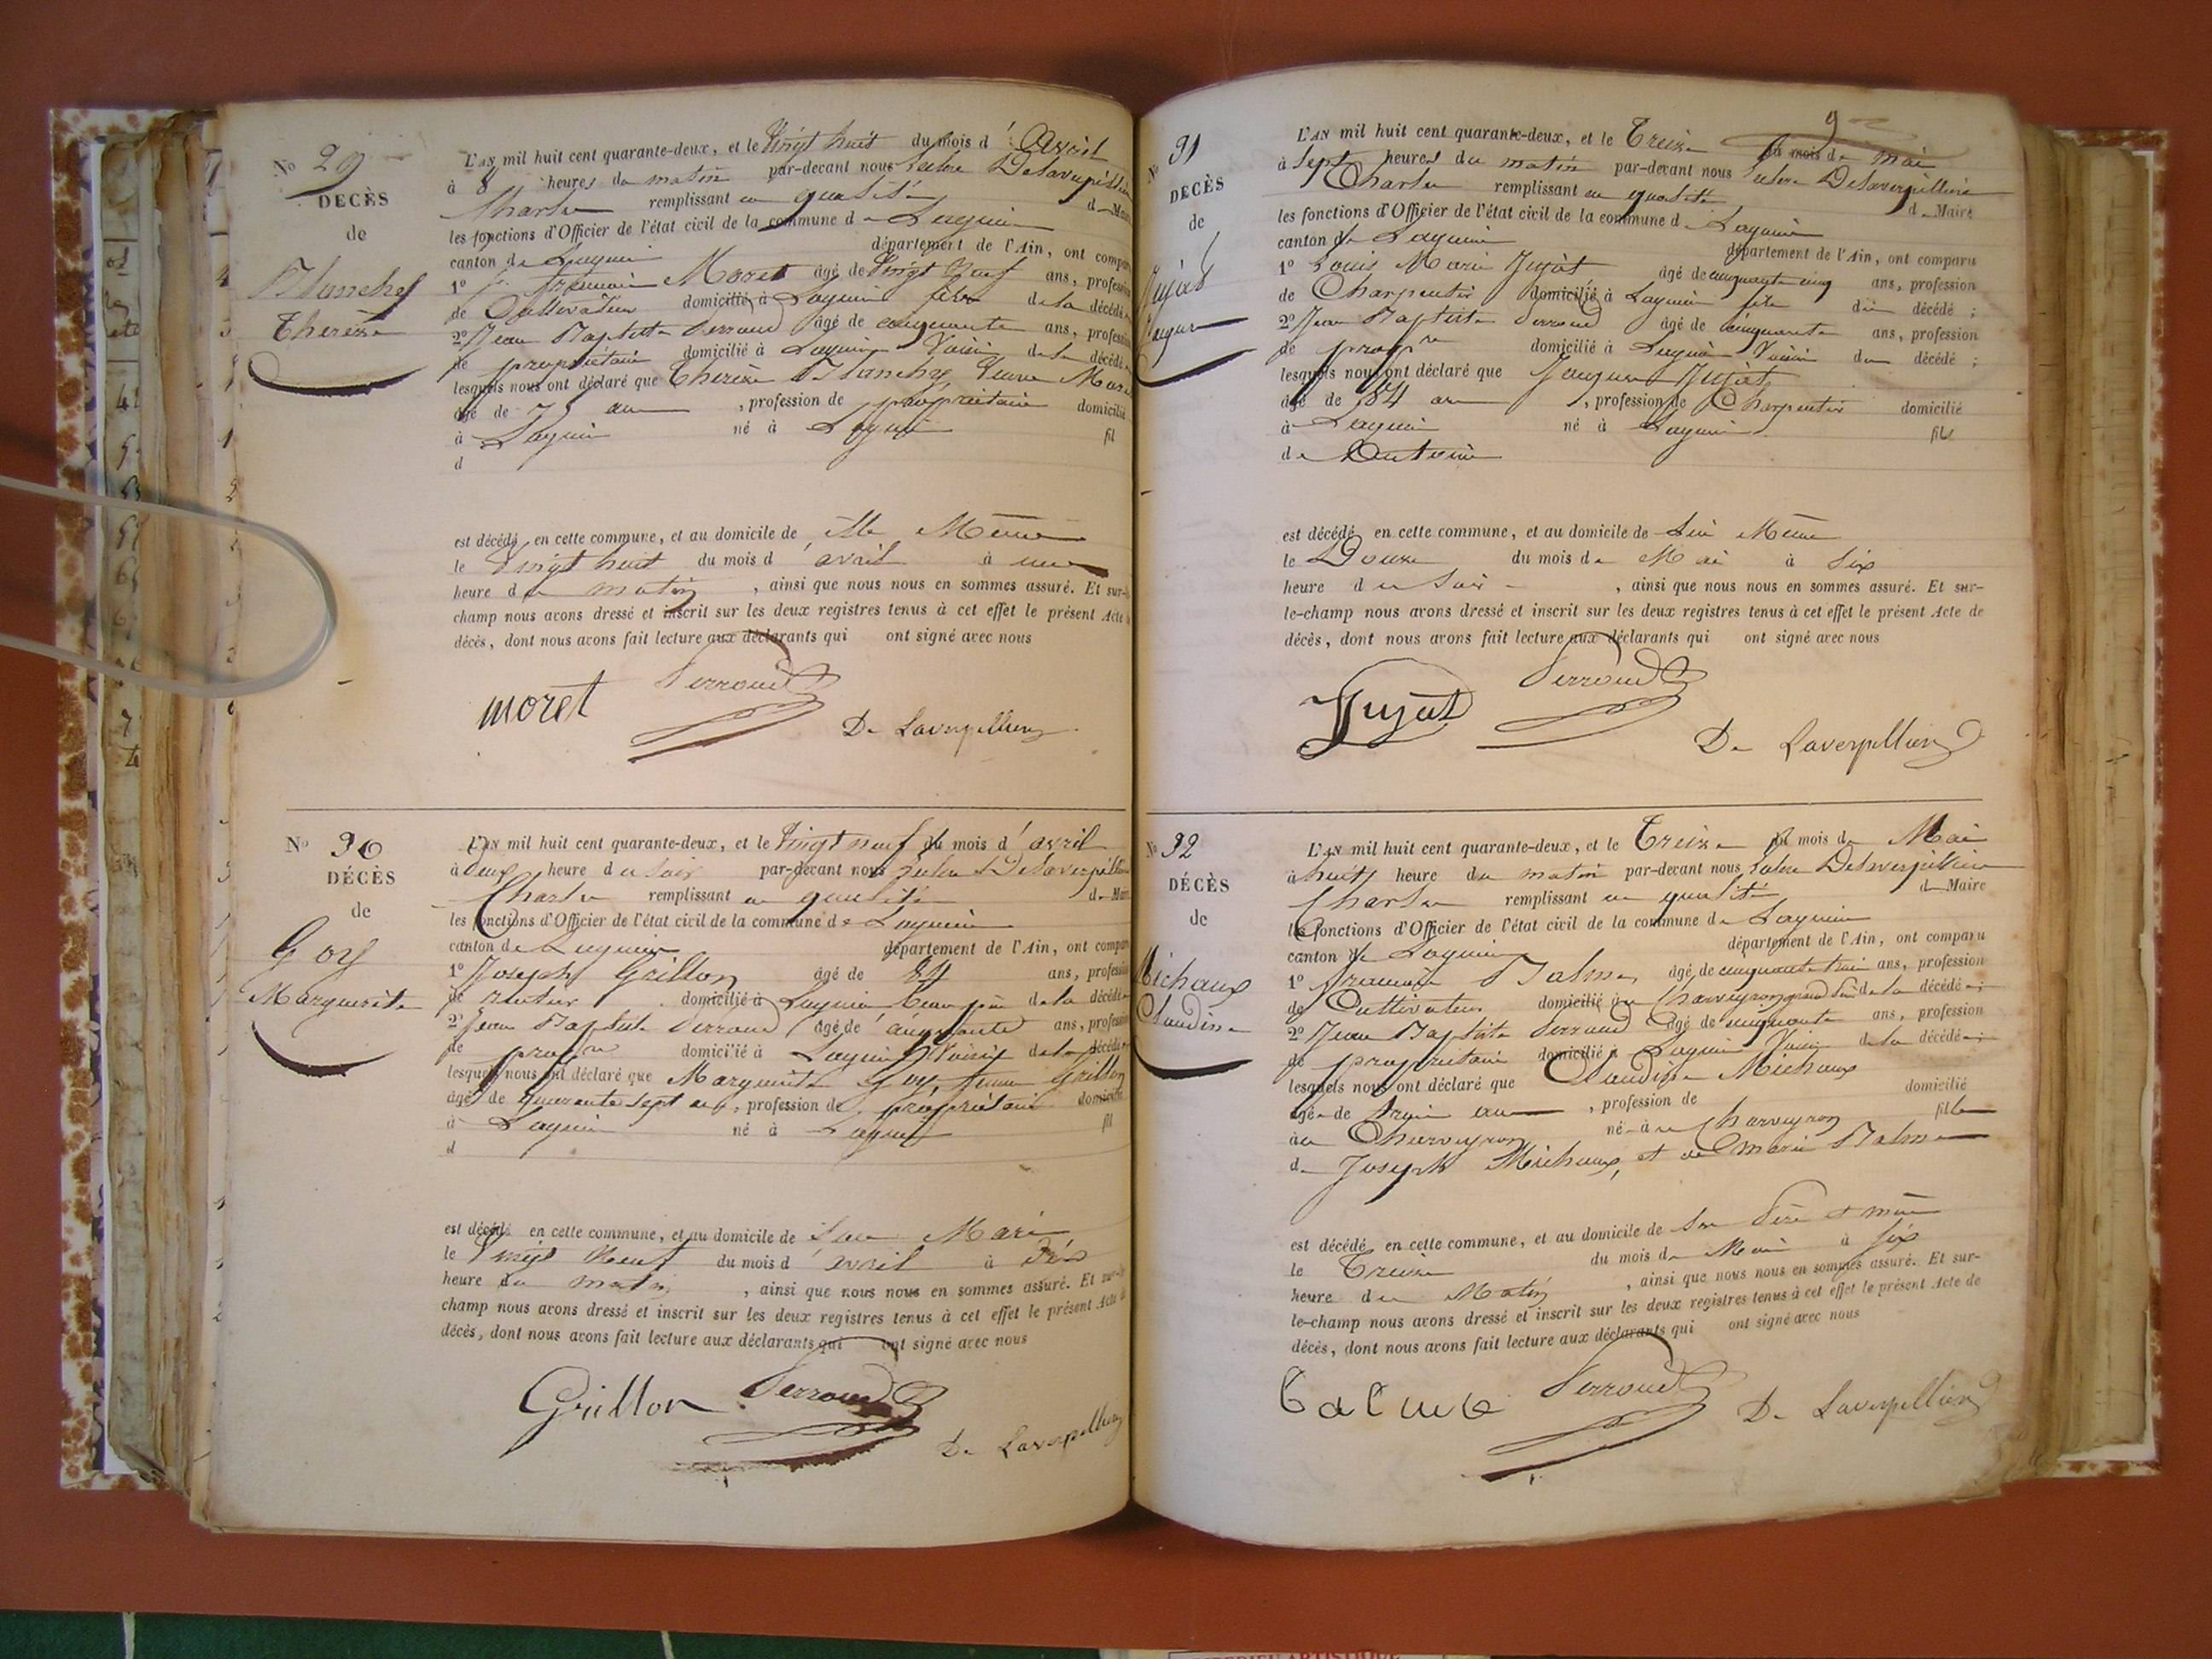 N° 29
DÉCÈS
de
Blanchet
Thérèse
L'AN mil huit cent quarante-deux, et le Vingt huit du mois d'Avril
à 8 heures du matin par-devant nous Delaverpillière
Charles remplissant en qualité d Maire
les fonctions d'Officier de l'état civil de la commune de Lagnieu
canton de Lagnieu département de l'Ain, ont comparu
1° Moret âgé de Vingt neuf ans, profession
de Cultivateur domicilié à Lagnieu de la décédée
2° Jean Baptiste Perroud âgé de cinquante ans, profession
de propriétaire domicilié à Lagnieu Voisin de la décédée
lesquels nous ont déclaré que Thérèse Veuve Moret
âgé de ans, profession de propriétaire domicilié
à Lagnieu né à Lagnieu fil
d
est décédé en cette commune, et au domicile de elle Même
le Vingt huit du mois d'avril à une
heure du matin, ainsi que nous nous en sommes assuré. Et sur-le-
champ nous avons dressé et inscrit sur les deux registres tenus à cet effet le présent Acte de
décès, dont nous avons fait lecture aux déclarants qui ont signé avec nous
moret Perroud
De Laverpillière
N° 30
DÉCÈS
de
Goy
Marguerite
L'AN mil huit cent quarante-deux, et le Vingt neuf du mois d'avril
à deux heure du soir par-devant nous Delaverpillière
Charles remplissant en qualité de Maire
les fonctions d'Officier de l'état civil de la commune de Lagnieu
canton de Lagnieu département de l'Ain, ont comparu
1° Joseph Grillon âgé de ans, profession
de domicilié à Lagnieu de la décédée
2° Jean Baptiste Perroud âgé de cinquante ans, profession
de propre domicilié à Lagnieu Voisin de la décédée
lesquels nous ont déclaré que Marguerite Goy, femme Grillon
âgé de quarante sept ans, profession de propriétaire domicilié
à Lagnieu né à Lagnieu fil
d
est décédé en cette commune, et au domicile de Son Mari
le Vingt Neuf du mois d'avril à dix
heure du matin, ainsi que nous nous en sommes assuré. Et sur-le-
champ nous avons dressé et inscrit sur les deux registres tenus à cet effet le présent Acte de
décès, dont nous avons fait lecture aux déclarants qui ont signé avec nous
Grillon Perroud
De Laverpillière
9
N° 31
DÉCÈS
de
Jujat
L'AN mil huit cent quarante-deux, et le Treize du mois de mai
à Sept heures du matin par-devant nous Delaverpillière
Charles remplissant en qualité d Maire
les fonctions d'Officier de l'état civil de la commune de Lagnieu
canton de Lagnieu département de l'Ain, ont comparu
1° Louis Marie Jujat âgé de cinquante cinq ans, profession
de Charpentier domicilié à Lagnieu du décédé ;
2° Jean Baptiste Perroud âgé de cinquante ans, profession
de propre domicilié à Lagnieu Voisin du décédé ;
lesquels nous ont déclaré que Jacques Jujat
âgé de 84 ans, profession de Charpentier domicilié
à Lagnieu né à Lagnieu fils
de Antoine
est décédé en cette commune, et au domicile de lui Même
le Douze du mois de Mai à Six
heure du Soir, ainsi que nous nous en sommes assuré. Et sur-
le-champ nous avons dressé et inscrit sur les deux registres tenus à cet effet le présent Acte de
décès, dont nous avons fait lecture aux déclarants qui ont signé avec nous
Jujat Perroud
De Laverpillière
N° 32
DÉCÈS
de
Michaux
Claudine
L'AN mil huit cent quarante-deux, et le Treize du mois de Mai
à huit heure du matin par-devant nous Delaverpillière
Charles remplissant en qualité d Maire
les fonctions d'Officier de l'état civil de la commune de Lagnieu
canton de Lagnieu département de l'Ain, ont comparu
1° François Balme, âgé de cinquante trois ans, profession
de Cultivateur domicilié au Charveyron grand Père de la décédée ;
2° Jean Baptiste Perroud âgé de cinquante ans, profession
de propriétaire domicilié à Lagnieu Voisin de la décédée ;
lesquels nous ont déclaré que Claudine Michaux
âgée de ans, profession de domicilié
au Charveyron née au Charveyron fille
de Joseph Michaux, et de Marie Balme
est décédé en cette commune, et au domicile de Ses Père et mère
le Treize du mois de Mai à six
heure du Matin, ainsi que nous nous en sommes assuré. Et sur-
le-champ nous avons dressé et inscrit sur les deux registres tenus à cet effet le présent Acte de
décès, dont nous avons fait lecture aux déclarants qui ont signé avec nous
balme Perroud
De Laverpillière